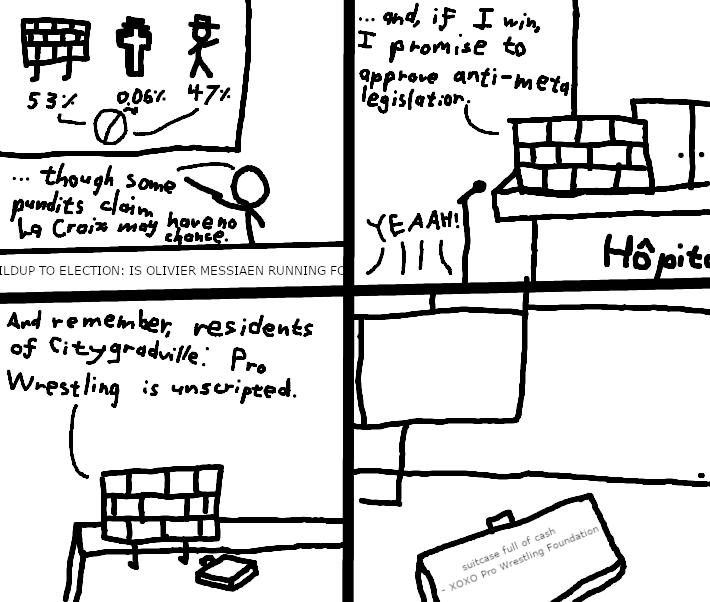 53%
0.06%
47%
... though some
pundits claim
La Croix may have no
chance.
ILDUP TO ELECTION: IS OLIVIER MESSIAEN RUNNING FO
... and, if I win,
I promise to
approve anti-meta
legislation.
YEAAH!
Hôpita
And remember, residents
of Citygradville: Pro
Wrestling is unscripted.
suitcase full of cash
- XOXO Pro Wrestling Foundation